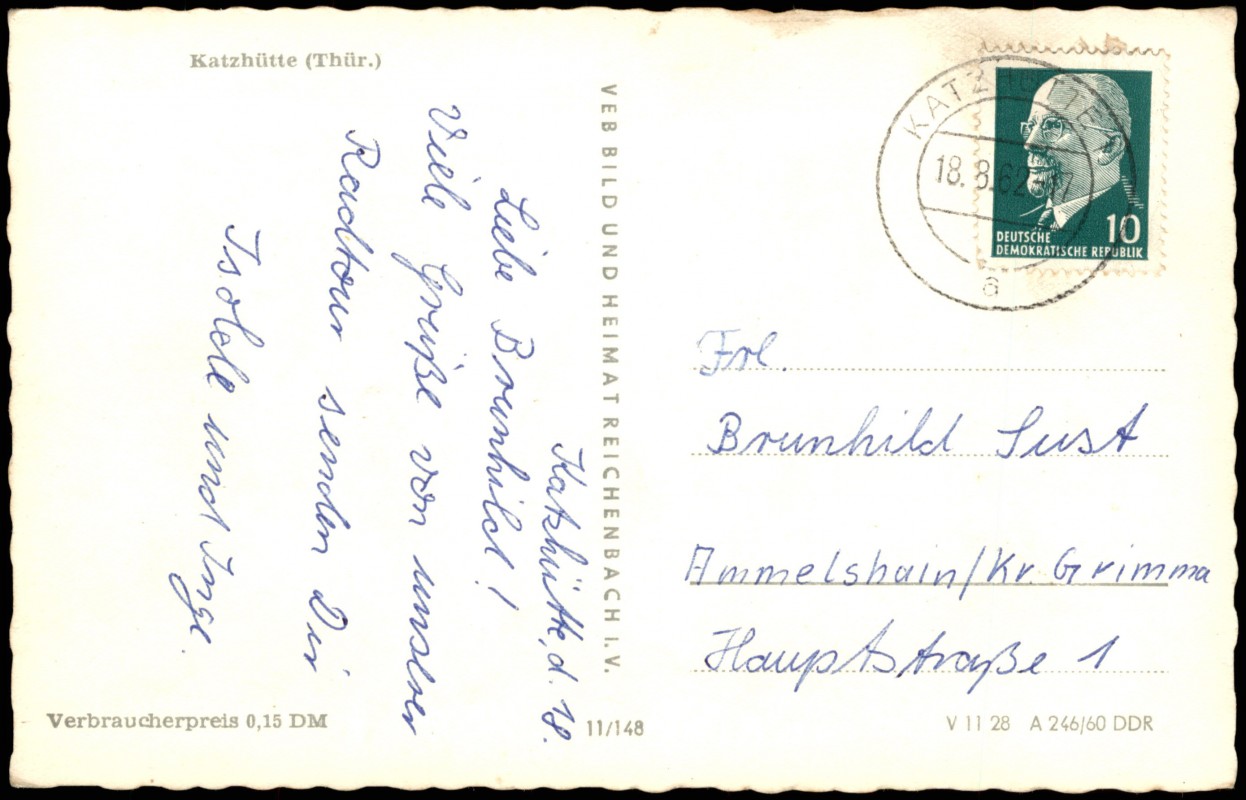 Katzhütte (Thür.)
Katzhütte, d. 18.
Liebe Brunhild!
Viele Grüße von unserer
Radtour senden Dir
Isolde und Inge.
Verbraucherpreis 0,15 DM
VEB BILD UND HEIMAT REICHENBACH I. V.
11/148
KATZHÜTTE
18.8.62-17
a
10
DEUTSCHE
DEMOKRATISCHE REPUBLIK
Frl.
Brunhild Sust
Ammelshain/Kr. Grimma
Hauptstraße 1
V 11 28 A 246/60 DDR